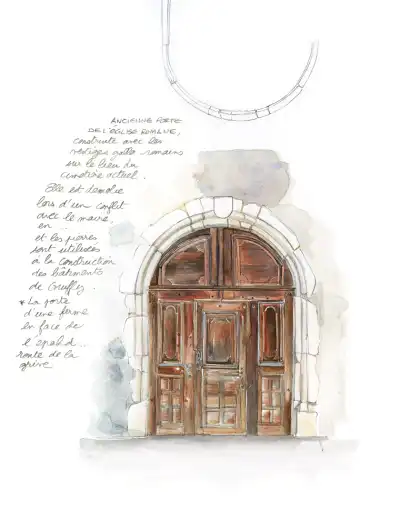 ANCIENNE PORTE
DE L'ÉGLISE ROMANE,
construite avec les
vestiges gallo romains
sur le lieu du
cimetière actuel.
Elle est démolie
lors d'un conflit
avec le maire,
en
et les pierres
sont utilisées
à la construction
des bâtiments
de Gruffy.
* La porte
d'une ferme
en face de
l'
route de la